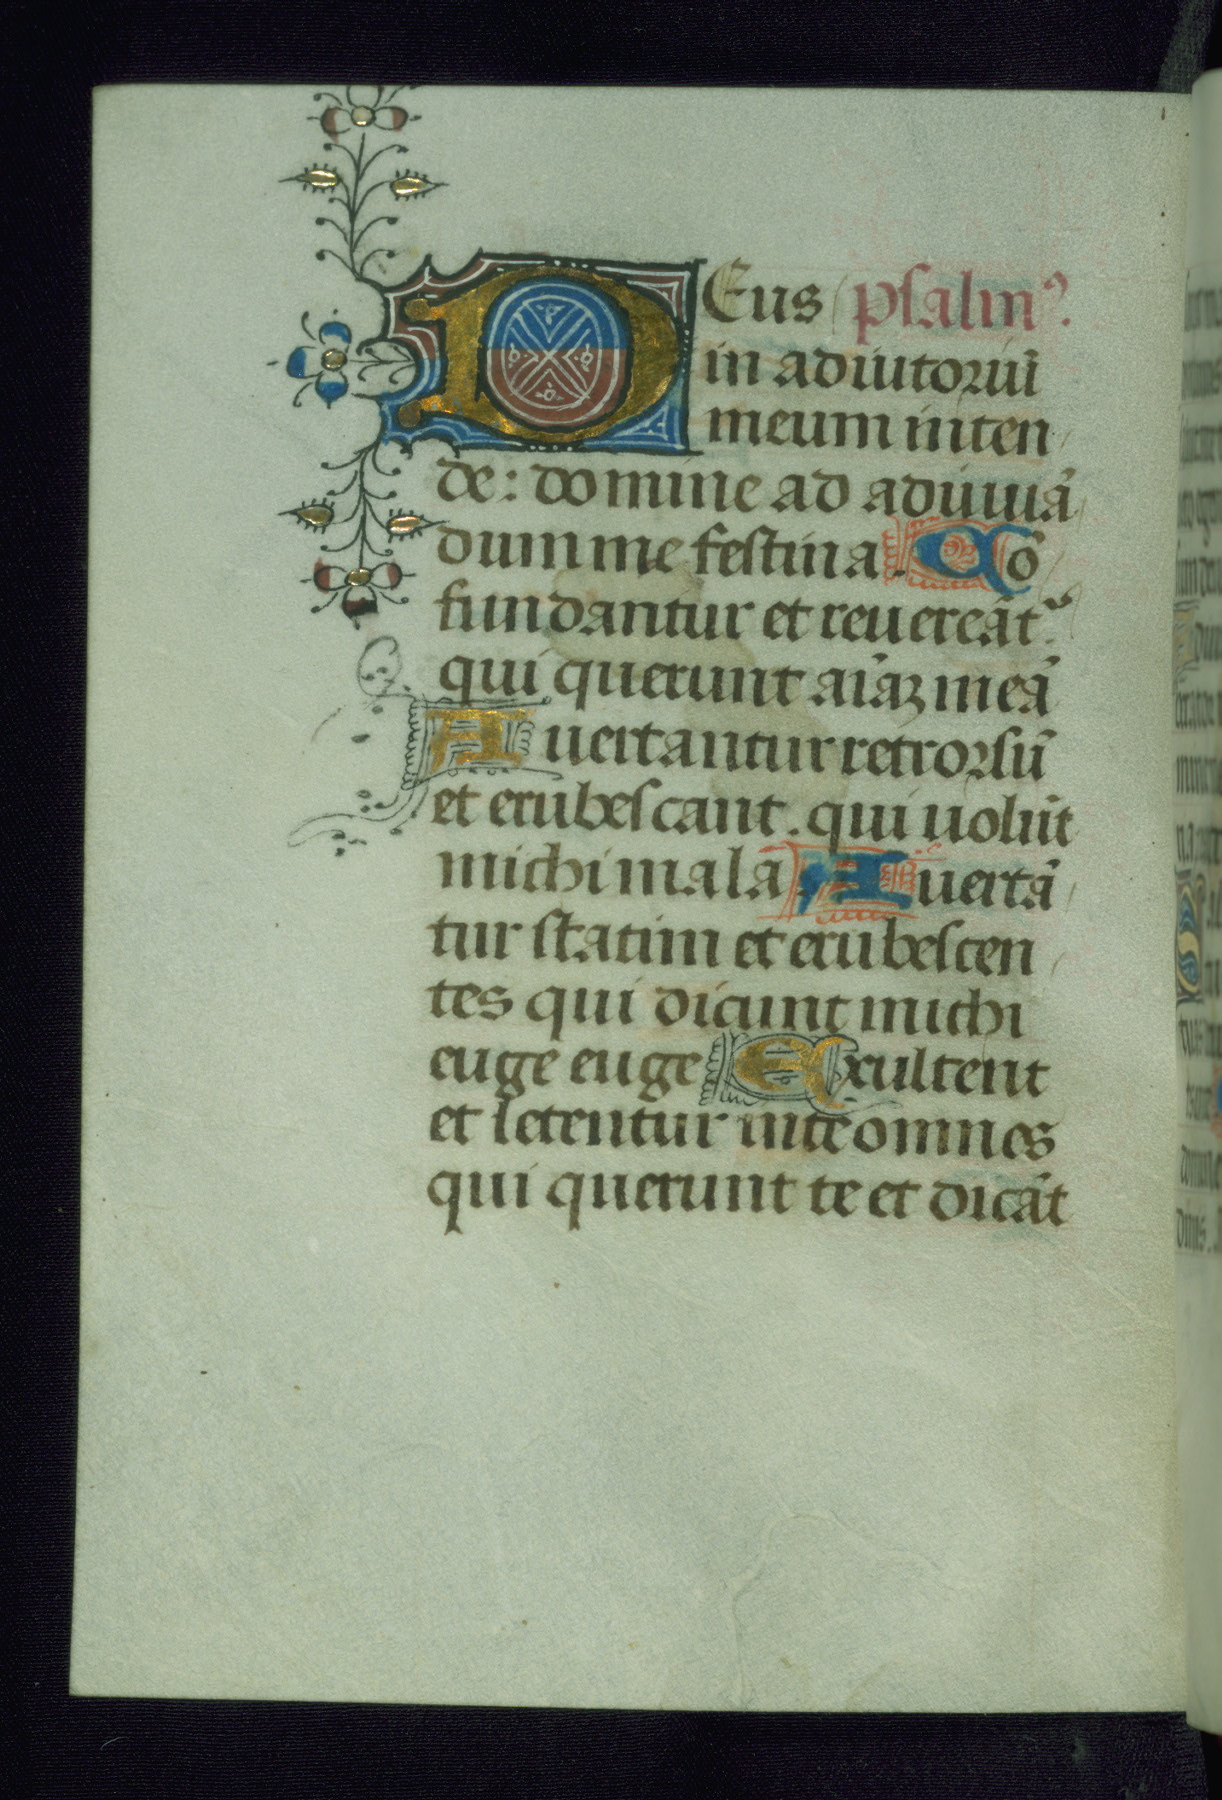 DEus psalm9.
in adiutoriū
meum inten
de: domine ad adiuuā
dum me festina. Cō
fundantur et reuereāt᷑
qui querunt aīaꝫ meā
Auertantur retrorsū
et erubescant. qui uolūt
michi mala Auertā
tur statim et erubescen
tes qui dicunt michi
euge euge Exultent
et letentur in te omnes
qui querunt te et dicāt